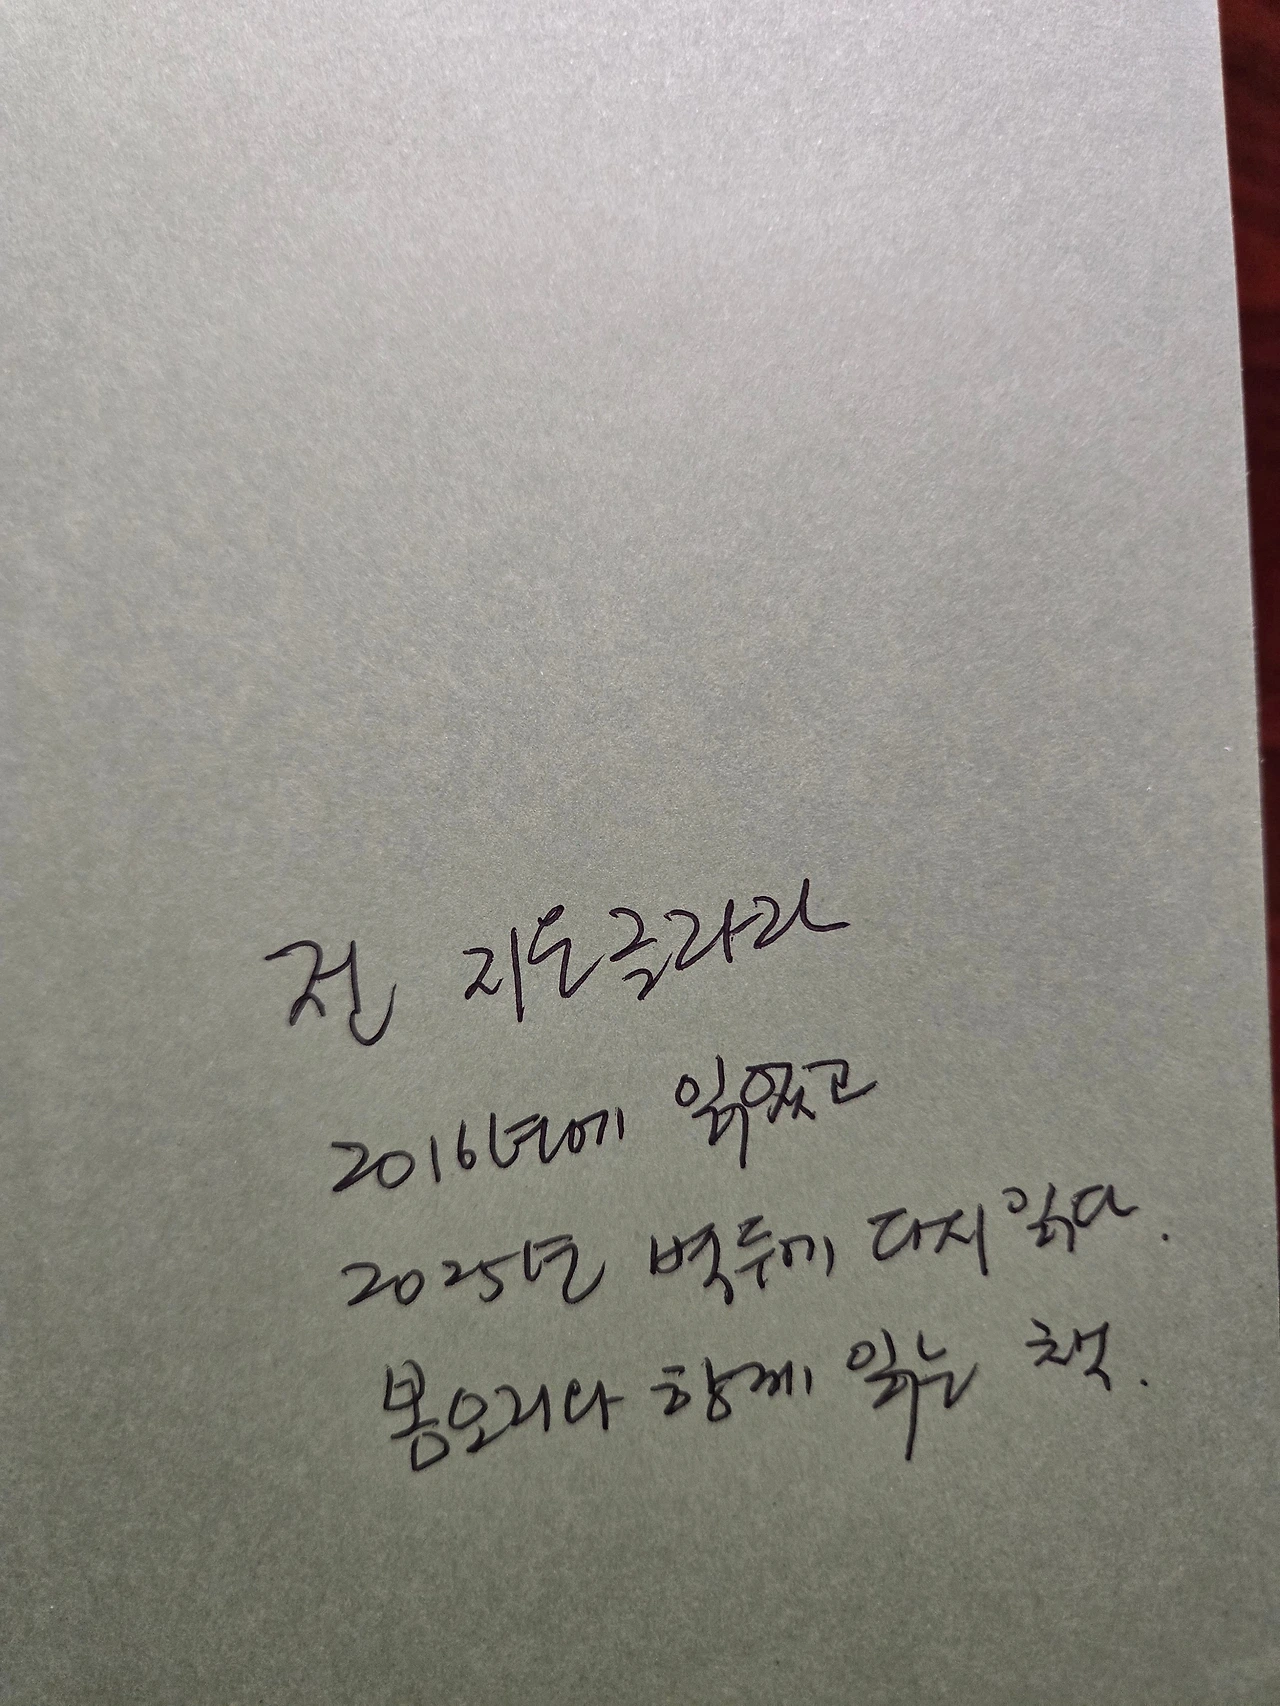 전 지도글라라
2016년에 읽었고
2025년 벽두에 다시 읽다.
봄오리와 함께 읽는 책.